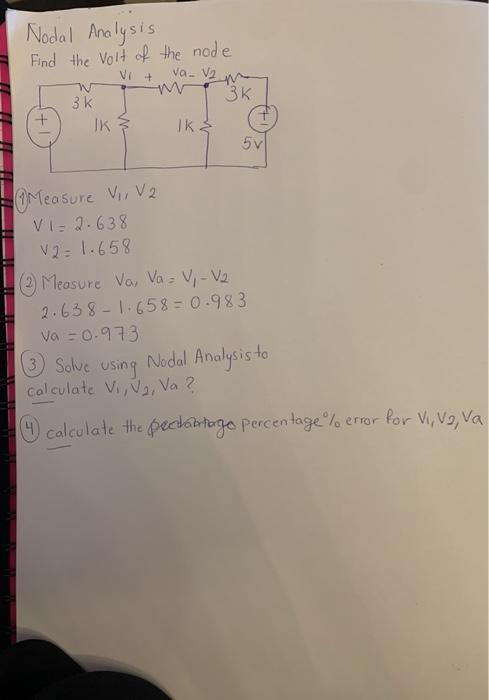 Nodal Analysis
Find the Volt of the node
V1 + Va - V2
3K 3K
+ 1K 1K +
5v
① Measure V1, V2
V1 = 2.638
V2 = 1.658
② Measure Va, Va = V1 - V2
2.638 - 1.658 = 0.983
Va = 0.973
③ Solve using Nodal Analysis to
calculate V1, V2, Va ?
④ calculate the percentage % error for V1, V2, Va